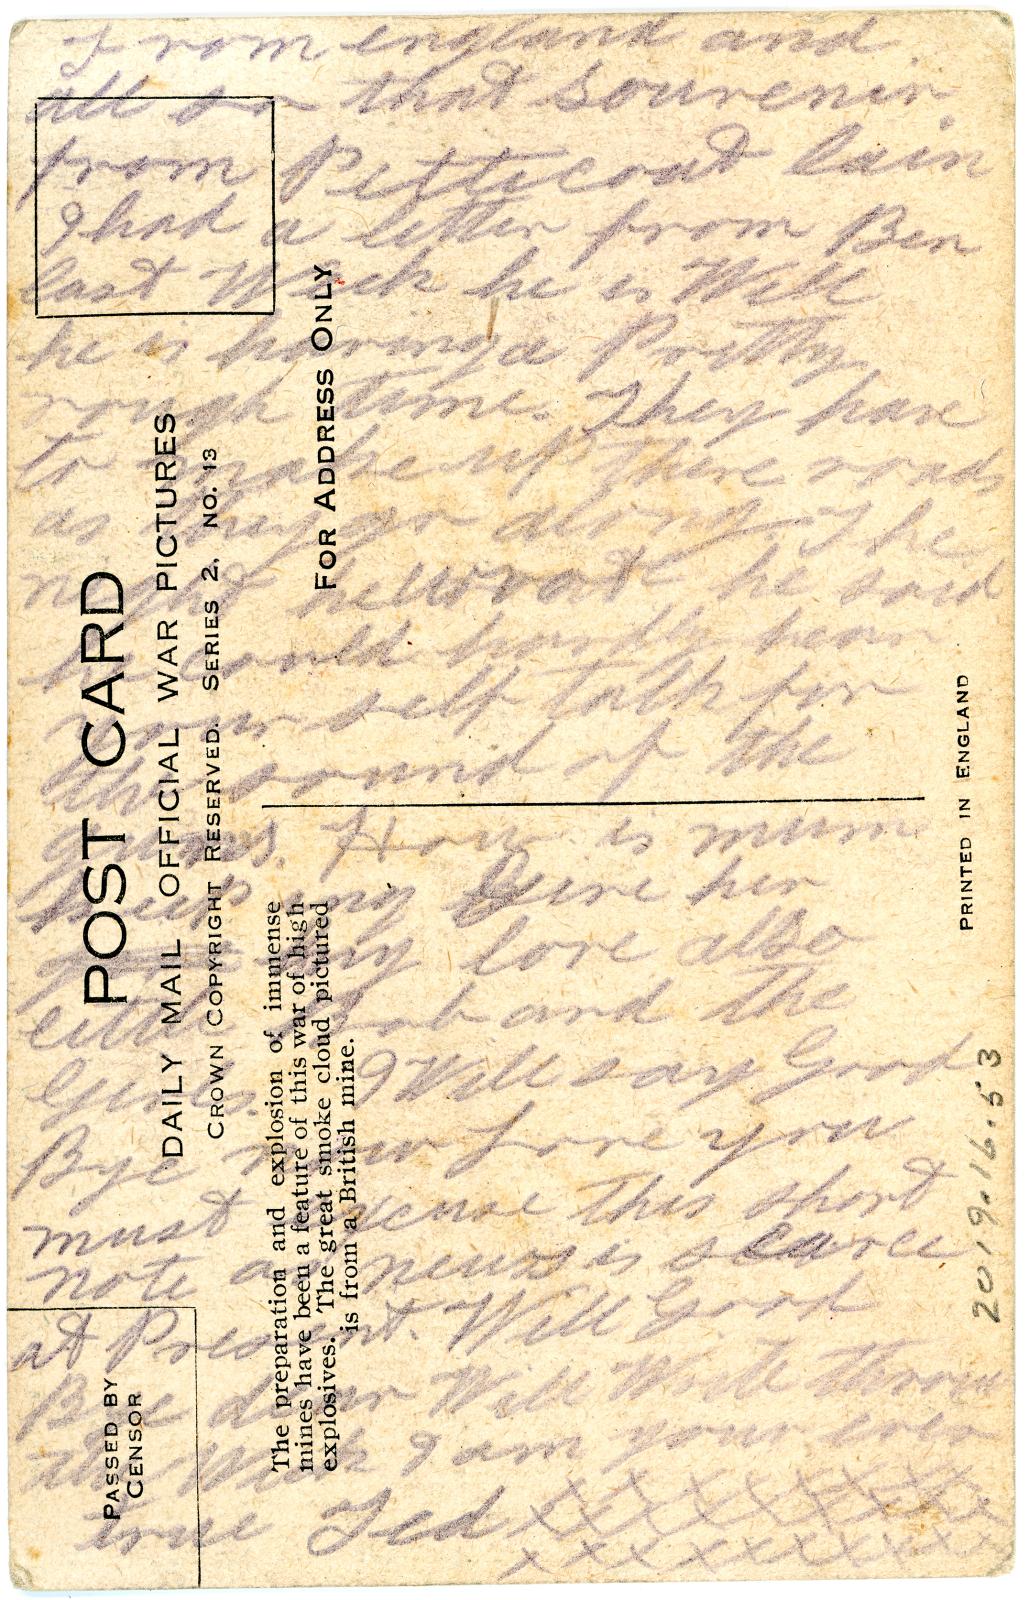 from england and
all so that souvenir
from Petticoat lain
I had a letter from Ben
last Week he is Well
he is having a Pretty
rough time. They have
to make up there roads
as they go along. The
night he wrote he said
he could hardly hear
your self talk for
the sound of the
guns. How is mum
keeping Give her
my love also
little Bob and the
Girls. I Will say Good
Bye now love you
must excuse this short
note as news is scarce
at Present. Will Good
Bye dear Will Write throu
the Week I am your ever
true Ted xxxxxxxxxx
xxxxxxxxxx
POST CARD
DAILY MAIL OFFICIAL WAR PICTURES
CROWN COPYRIGHT RESERVED. SERIES 2. NO. 13
FOR ADDRESS ONLY
The preparation and explosion of immense
mines have been a feature of this war of high-
explosives. The great smoke cloud pictured
is from a British mine.
PASSED BY
CENSOR
PRINTED IN ENGLAND
2019.16.53